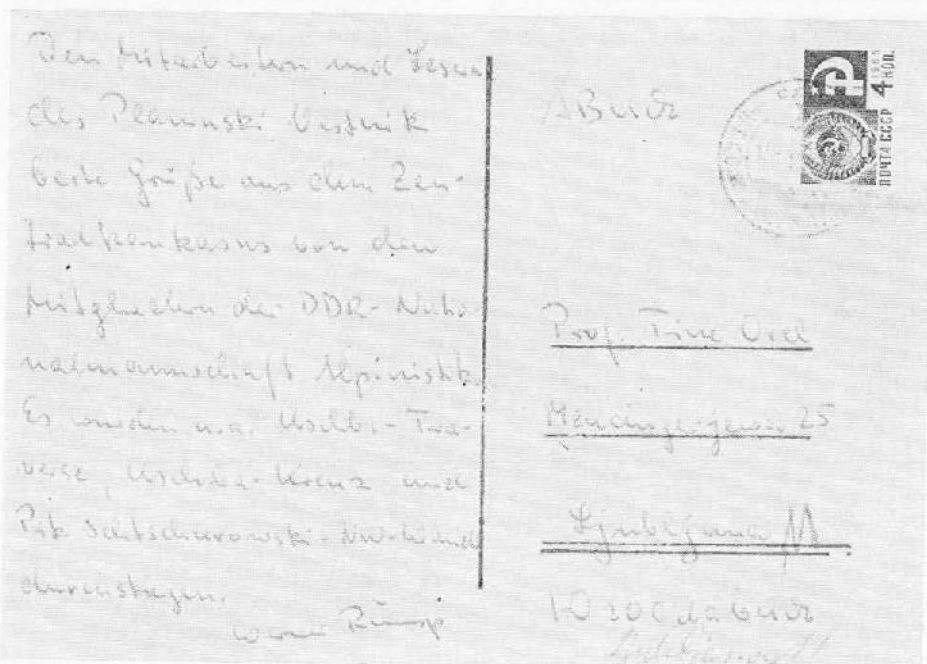 Den Mitarbeitern und Lesern
des Planinski Vestnik
beste Grüße aus dem Zen-
tralkaukasus von den
Mitgliedern der DDR-Natio
nalmannschaft Alpinistik.
Es wurden u.a. Uschba-Tra-
verse, Uschba-Kreuz und
Pik Schtschurowski-NW-Wand
durchstiegen.
Авиа
ПОЧТА СССР 4 КОП.
Prof. Tine Orel
25
Ljubljana
Югославия